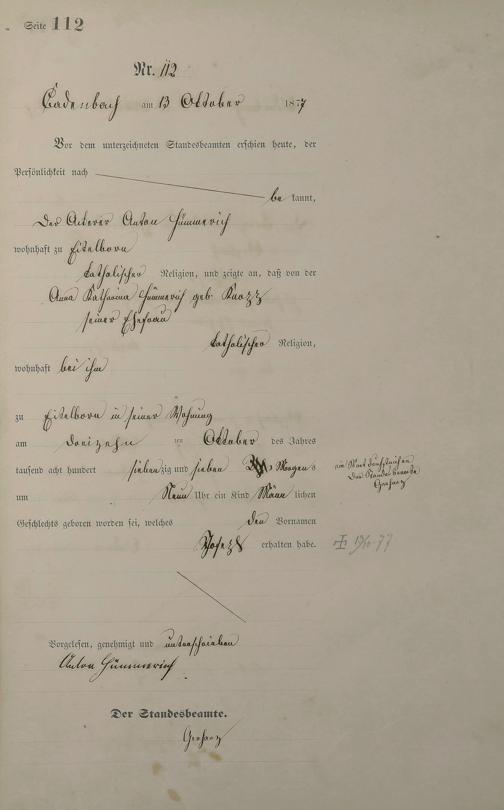 Seite 112
Nr. 112
Cadenbach am 13 Oktober 1877
Vor dem unterzeichneten Standesbeamten erschien heute, der
Persönlichkeit nach
be kannt,
der Ackerer Anton Hümmerich
wohnhaft zu Eitelborn
katholischer Religion, und zeigte an, daß von der
Anna Katharina Hümmerich geb Knopp
seiner Ehefrau
katholischer Religion,
wohnhaft bei ihm
zu Eitelborn in seiner Wohnung
am dreizehn ten Oktober des Jahres
tausend acht hundert siebenzig und sieben Morgens
um Neun Uhr ein Kind Männlichen
Geschlechts geboren worden sei, welches den Vornamen
Josef erhalten habe.
ein Wort durchstrichen
Der Standesbeamte
Gerharz
Vorgelesen, genehmigt und unterschrieben
Anton Hümmerich
Der Standesbeamte.
Gerharz